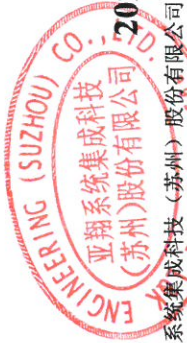 ENGINEERING (SUZHOU) CO., LTD.
亚翔系统集成科技
(苏州)股份有限公司
20
系统集成科技（苏州）股份有限公司